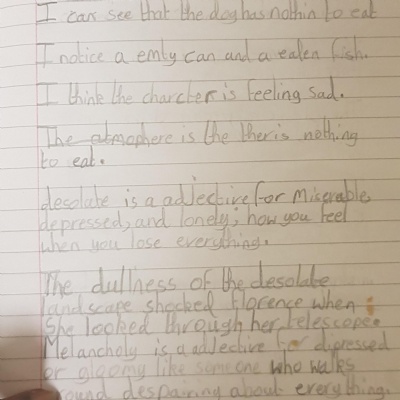 I can see that the dog has nothin to eat
I notice a emty can and a eaten fish.
I think the charcter is feeling sad.
The atmophere is the ther is nothing
to eat.
desolate is a adjective for Miserable,
depressed, and lonely; how you feel
when you lose everything.
The dullness of the desolate
landscape shocked florence when
She looked through her telescope.
Melancholy is a adjective for dipressed
or gloomy like someone who walks
round despairing about everything.